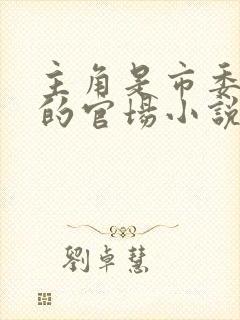 主角是市委
的官场小說
劉卓慧